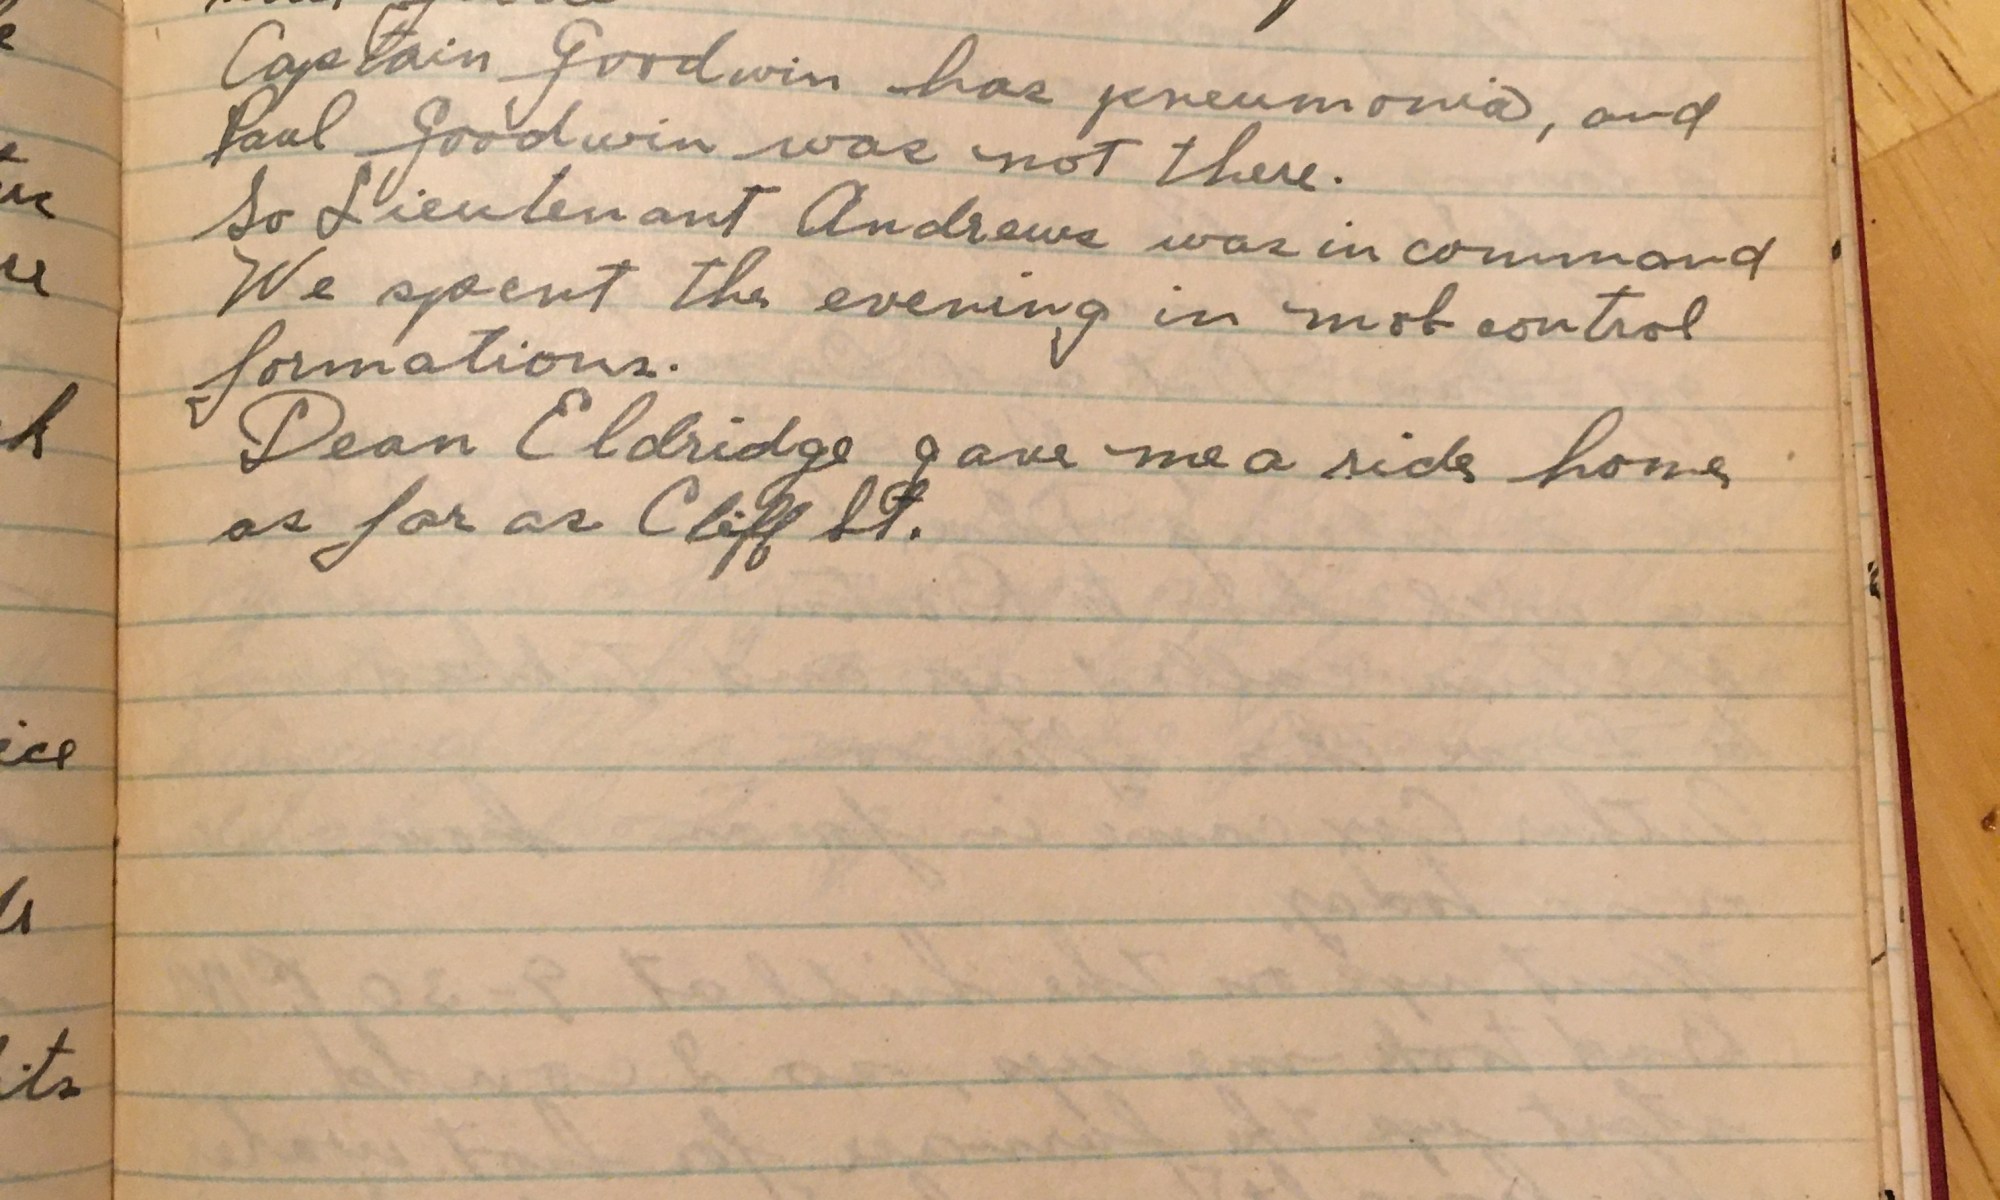 Captain Goodwin has pneumonia, and
Paul Goodwin was not there.
So Lieutenant Andrews was in command
We spent the evening in mob control
formations.
Dean Eldridge gave me a ride home
as far as Cliff St.